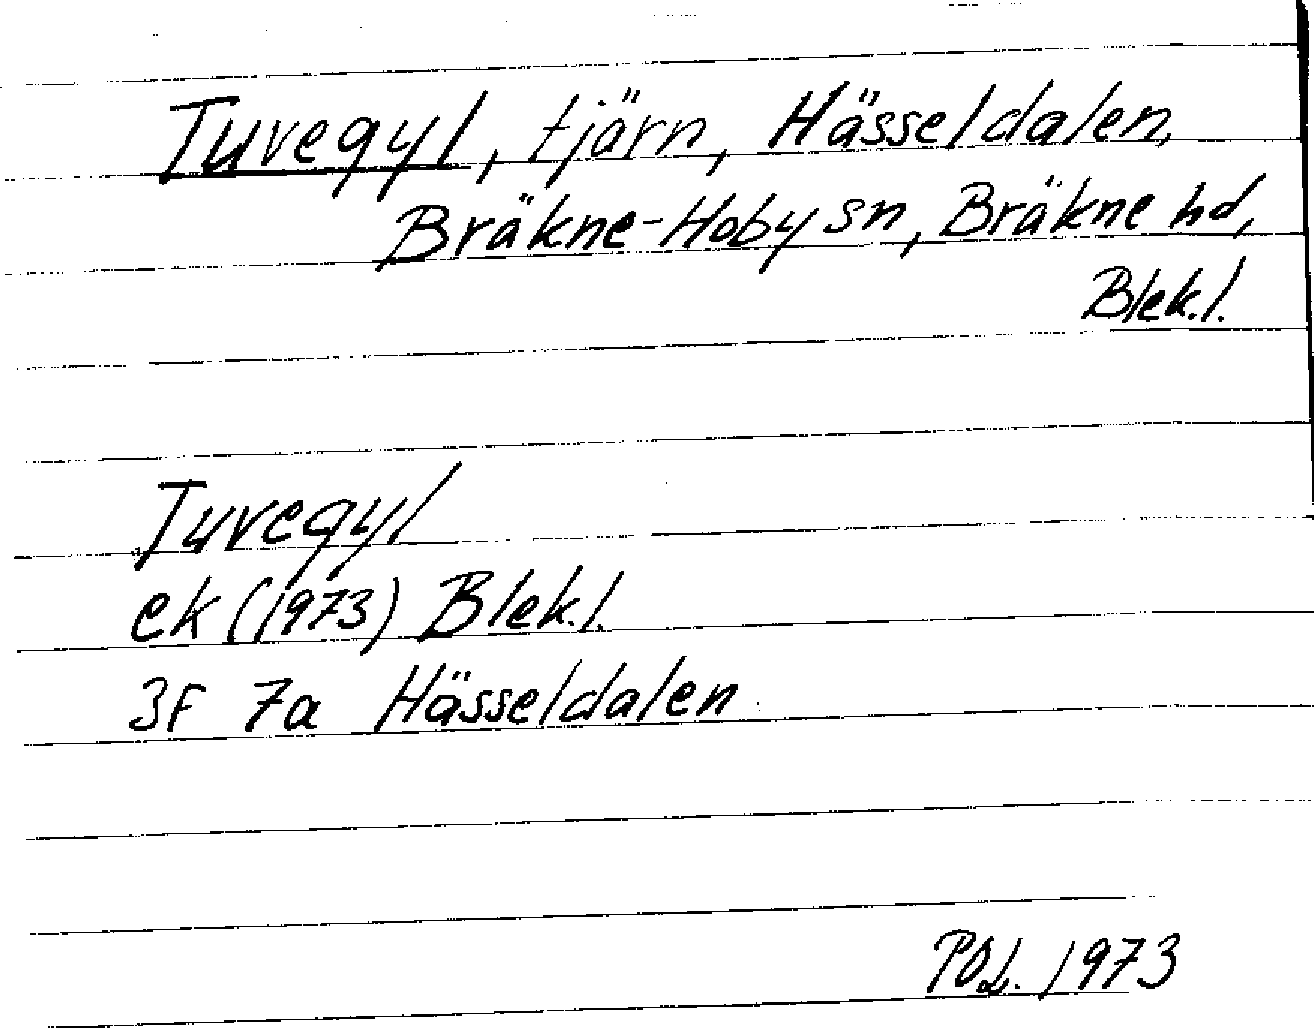 Tuvegyl, tjärn, Hässeldalen,
Bräkne-Hoby sn, Bräkne hd,
Blek.l.
Tuvegyl
ek (1973) Blek.l.
3F 7a Hässeldalen
POL. 1973